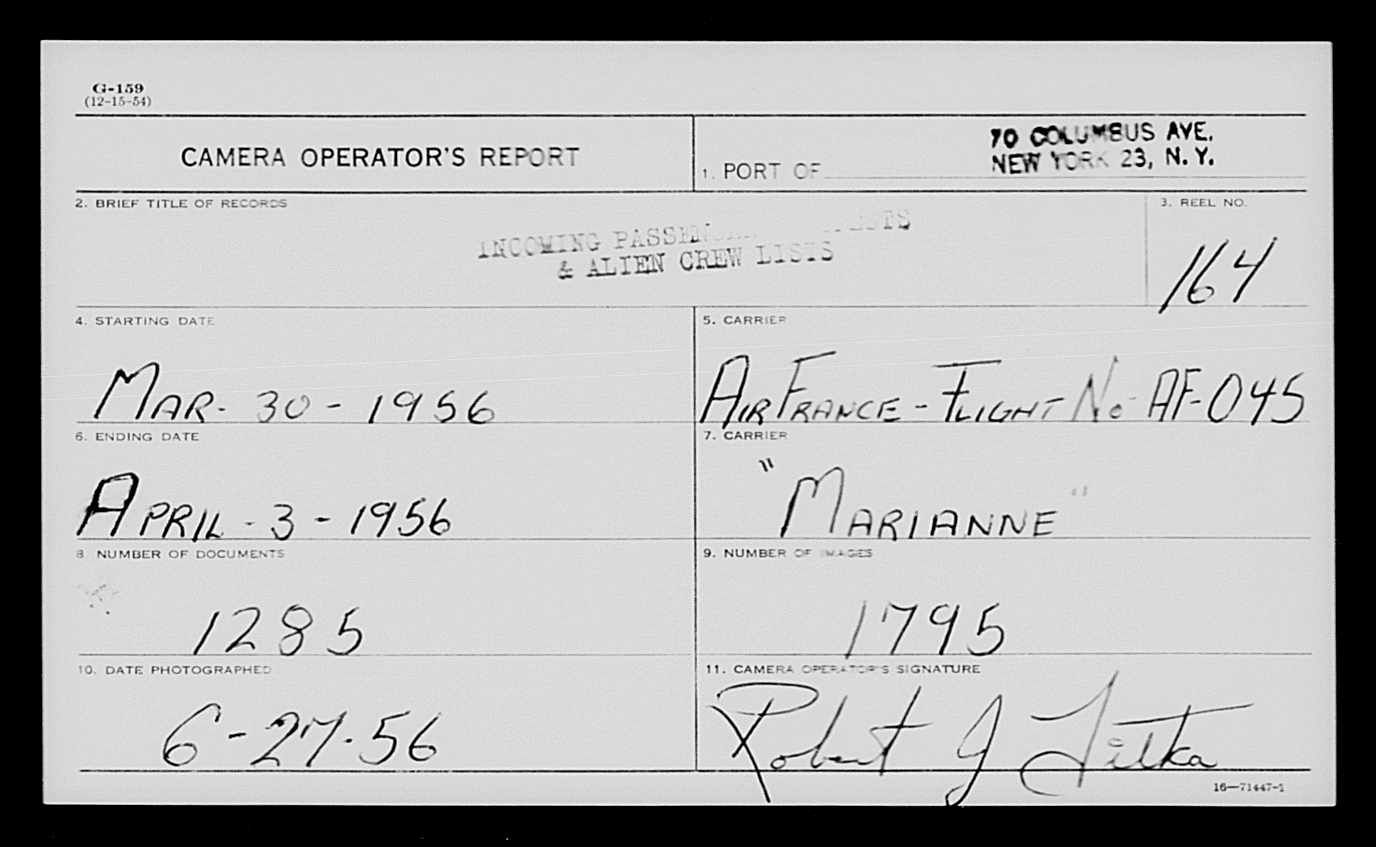 G-159
(12-15-54)
CAMERA OPERATOR'S REPORT
1. PORT OF
70 COLUMBUS AVE.
NEW YORK 23, N. Y.
2. BRIEF TITLE OF RECORDS
INCOMING PASSENGER
& ALIEN CREW LISTS
3. REEL NO.
164
4. STARTING DATE
MAR- 30 - 1956
5. CARRIER
AIR FRANCE - FLIGHT No- AF-045
6. ENDING DATE
APRIL - 3 - 1956
7. CARRIER
"MARIANNE"
8 NUMBER OF DOCUMENTS
1285
9. NUMBER OF IMAGES
1795
10. DATE PHOTOGRAPHED
6-27-56
11. CAMERA OPERATOR'S SIGNATURE
Robert J
16—71447-1